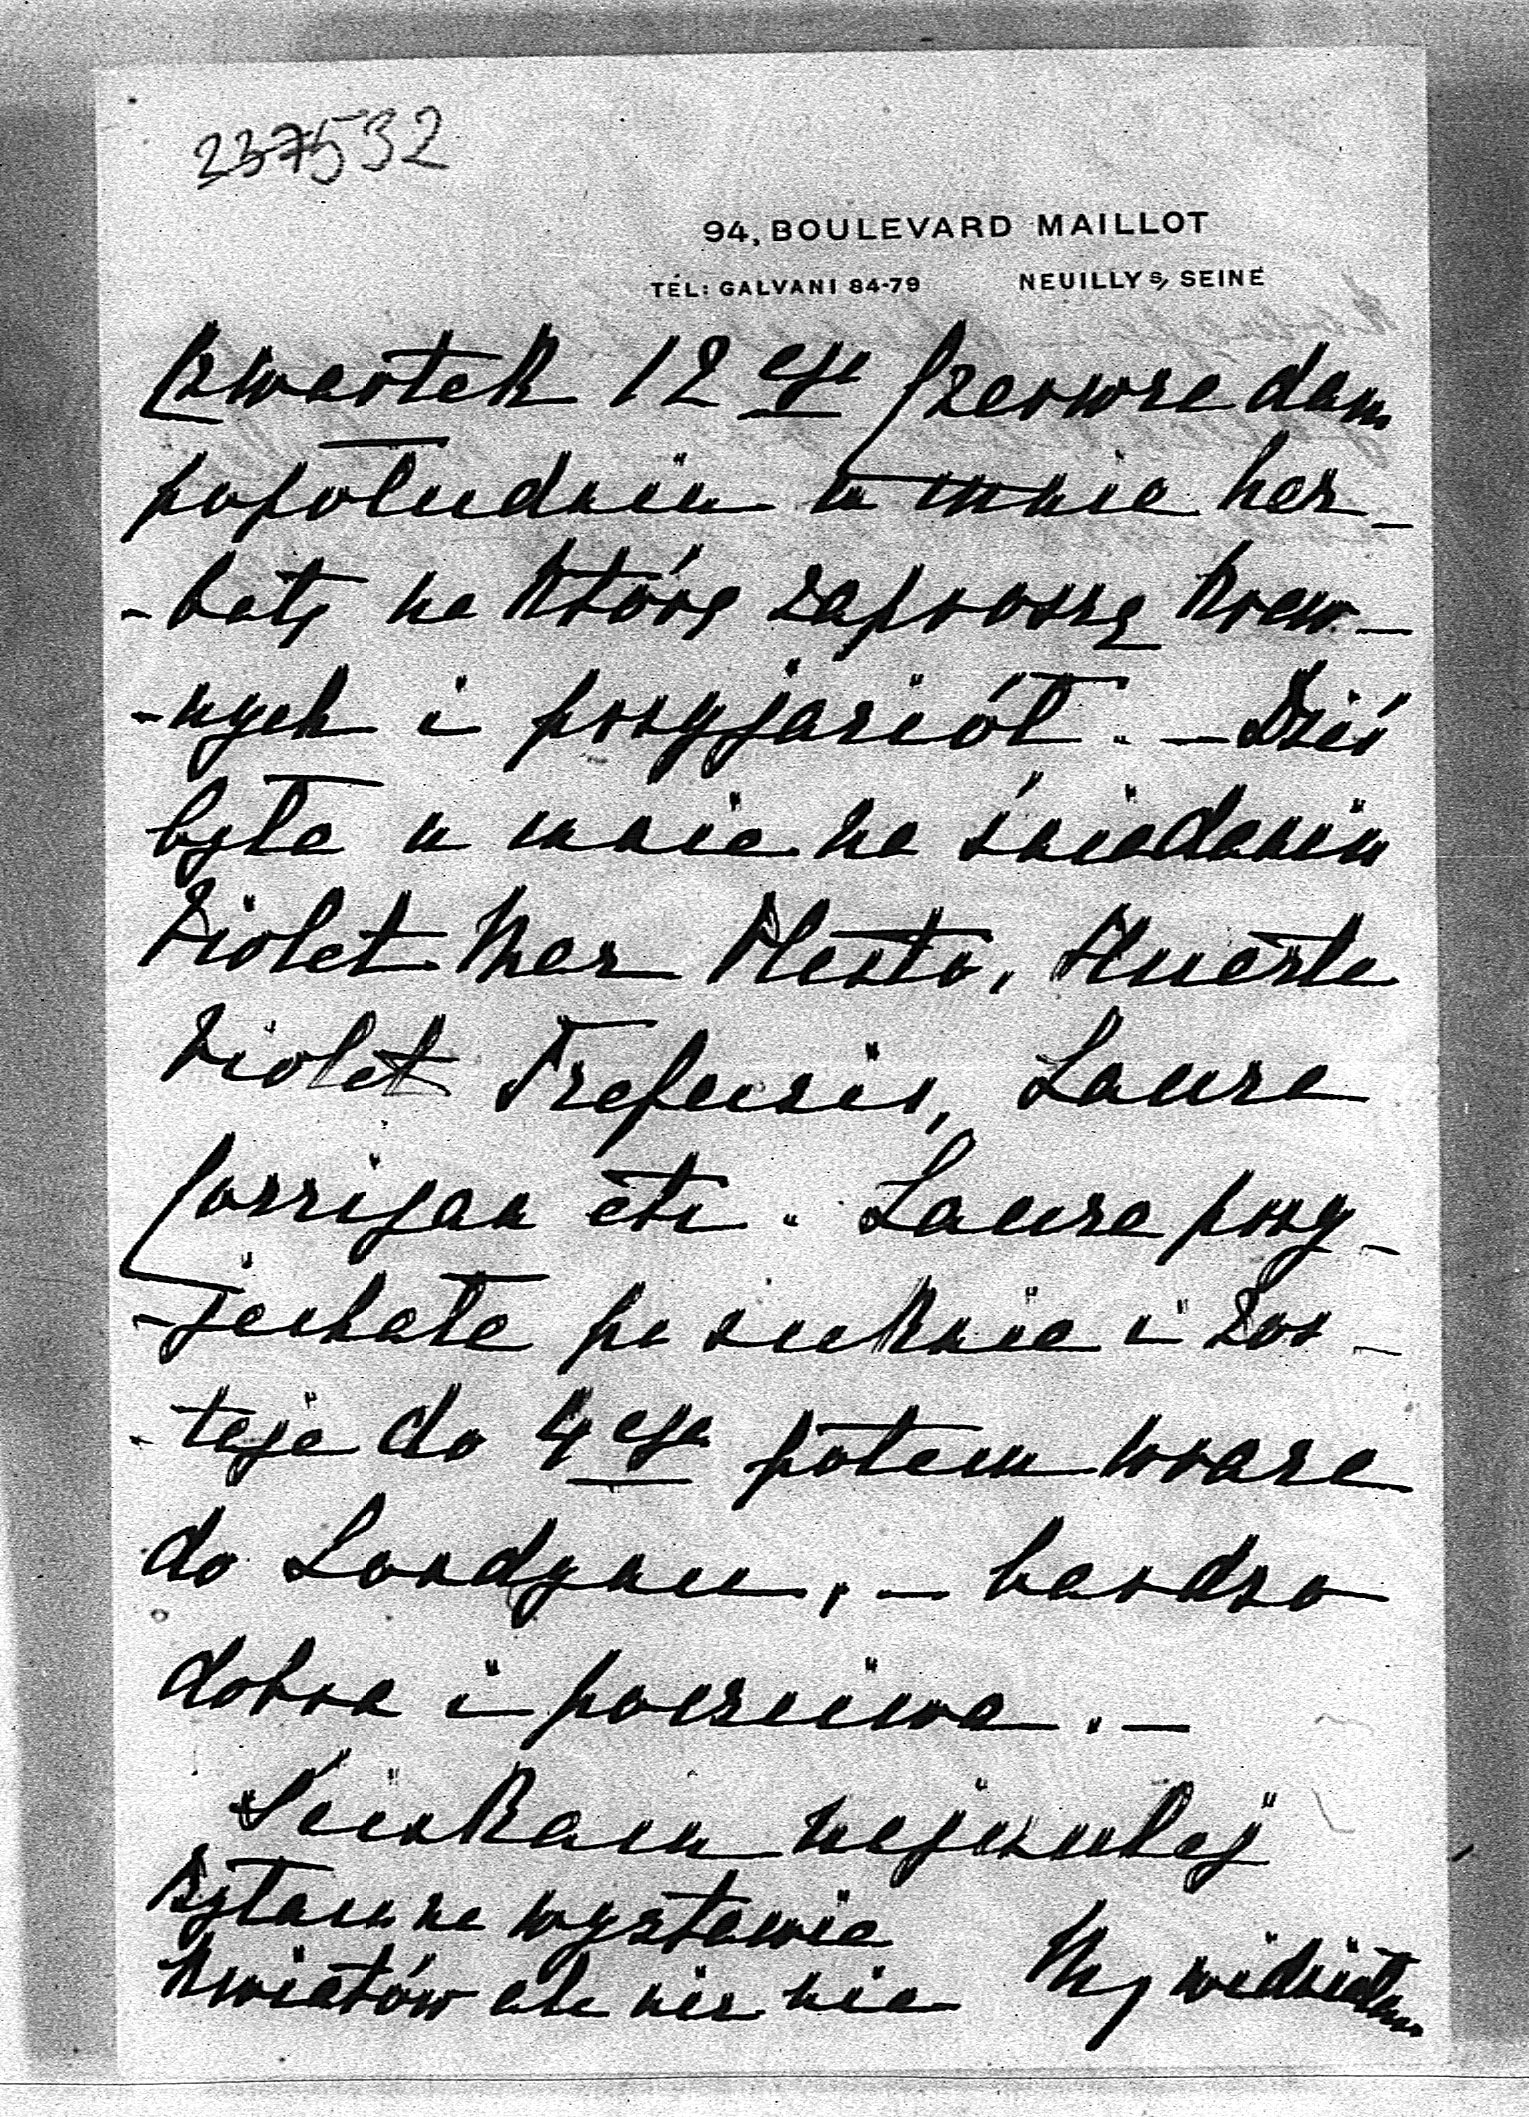 237532
94, BOULEVARD MAILLOT
TÉL: GALVANI 84-79 NEUILLY S/ SEINE
Czwartek 12ego Czerwca dam
popołudniu u mnie her-
-batę na którę zaproszę krew-
-nych i przyjaciół. - Dziś
była u mnie na śniadaniu
Violet Mar Hesta, Huerta
Violet Trefusis, Laura
Corrigan etc. Laura przy-
-jechała po suknie i zos-
-taje do 4ego potem wraca
do Londynu, - bardzo
dobra i poczciwa. -
Ściskam najczulej
Byłam na wystawie
kwiatów ale nic nie widziałam
M